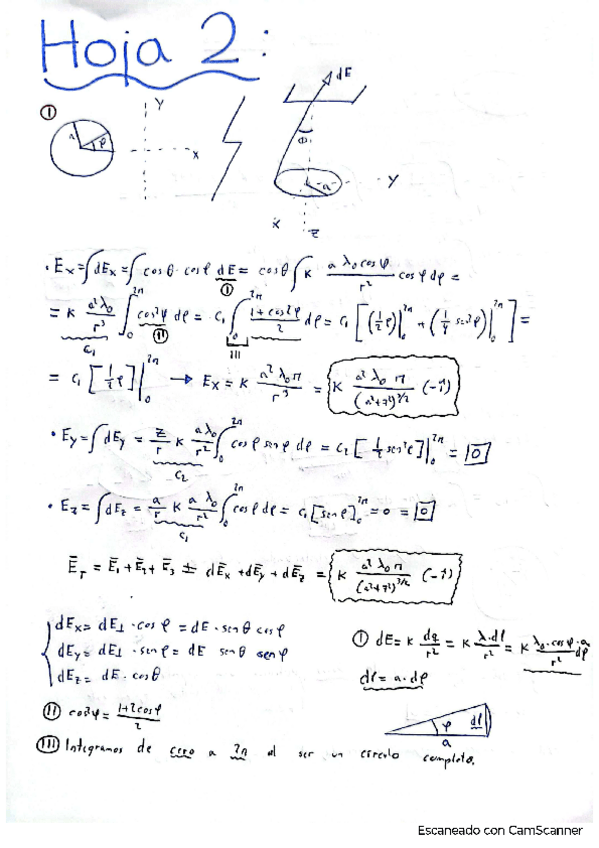 Hoja 2:
I
a
φ
Y
X
dE
θ
a
Y
X
Z
· Ex = ∫dEx = ∫ cosθ · cosφ dE = cosθ ∫ K a λ₀ cosφ / r² cosφ dφ =
I
= K a² λ₀ / r³ ∫₀^2π cos²φ dφ = C₁ ∫₀^2π (1 + cos2φ) / 2 dφ = C₁ [(½ φ)|₀^2π + (¼ sen2φ)|₀^2π] =
C₁ II III
= C₁ [½ φ]|₀^2π → Ex = K a² λ₀ π / r³ = K a² λ₀ π / (a² + z²)^3/2 (-i)
· Ey = ∫dEy = z/r K a λ₀ / r² ∫₀^2π cosφ senφ dφ = C₂ [½ sen²φ]|₀^2π = 0
C₂
· Ez = ∫dEz = a/r K a λ₀ / r² ∫₀^2π cosφ dφ = C₁ [senφ]₀^2π = 0 = 0
C₁
E_T = E₁ + E₂ + E₃ = dEx + dEy + dEz = K a² λ₀ π / (a² + z²)^3/2 (-i)
dEx = dE⊥ · cosφ = dE · senθ cosφ
dEy = dE⊥ · senφ = dE senθ senφ
dEz = dE · cosθ
I dE = K dq / r² = K λ·dl / r² = K λ₀ · cosφ · a / r² dφ
dl = a · dφ
II cos²φ = (1 + 2cosφ) / 2
φ
dl
a
III Integramos de cero a 2π al ser un círculo completo.
Escaneado con CamScanner